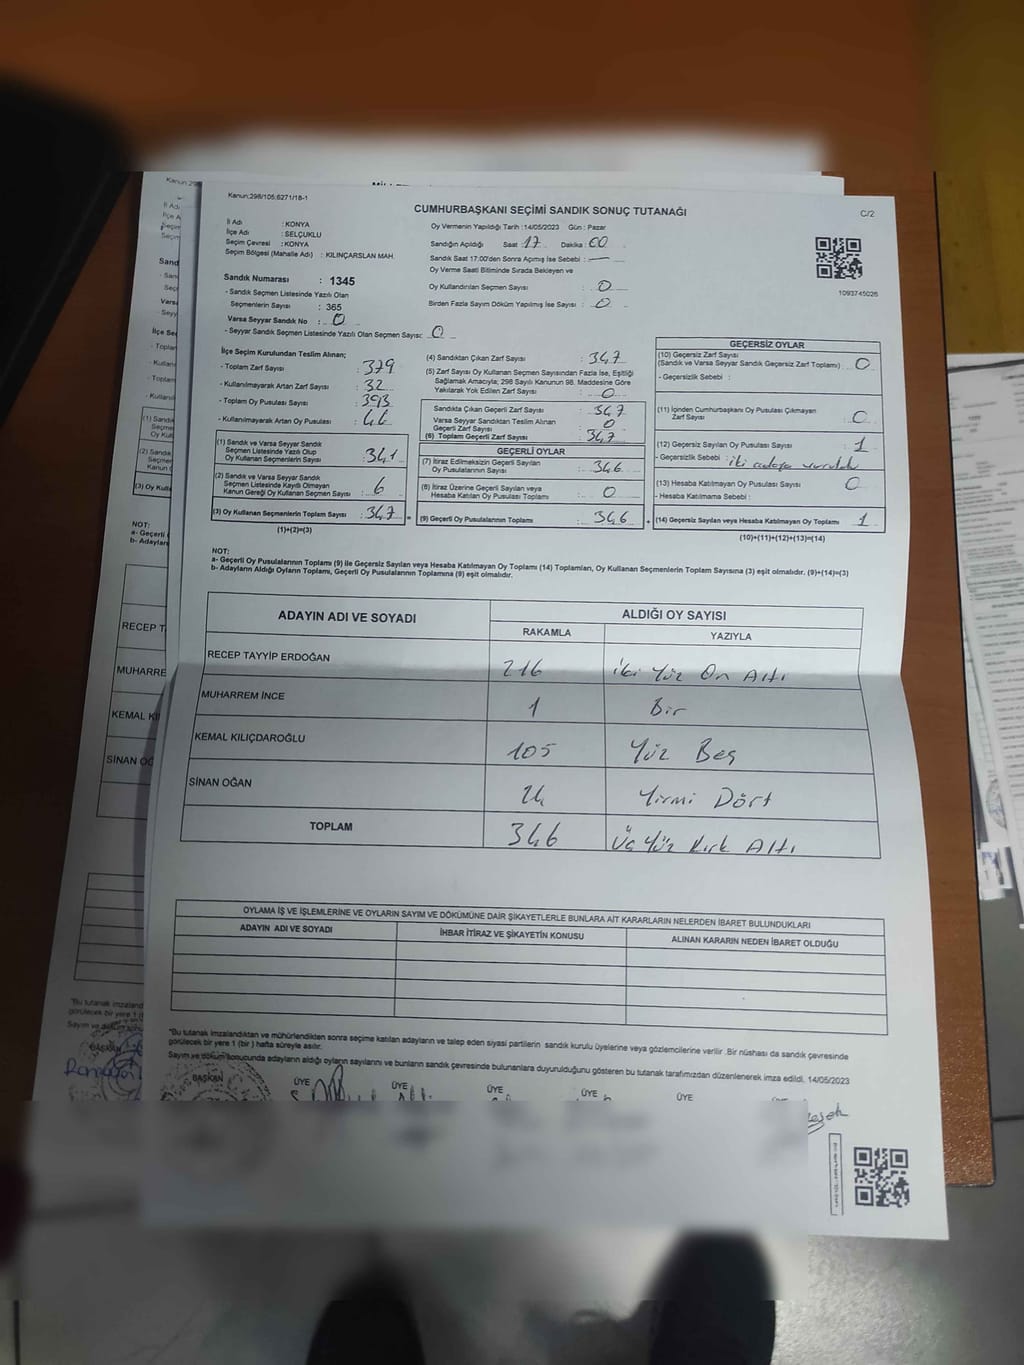 Kanun:298/105;6271/18-1
CUMHURBAŞKANI SEÇİMİ SANDIK SONUÇ TUTANAĞI
C/2
İl Adı : KONYA
İlçe Adı : SELÇUKLU
Seçim Çevresi : KONYA
Seçim Bölgesi (Mahalle Adı) : KILINÇARSLAN MAH.
Oy Vermenin Yapıldığı Tarih :14/05/2023 Gün : Pazar
Sandığın Açıldığı Saat 17 Dakika : 00
Sandık Saat 17:00'den Sonra Açımış İse Sebebi : —
Oy Verme Saati Bitiminde Sırada Bekleyen ve
Oy Kullandırılan Seçmen Sayısı : 0
Birden Fazla Sayım Döküm Yapılmış İse Sayısı : 0
1093745026
Sandık Numarası : 1345
- Sandık Seçmen Listesinde Yazılı Olan
Seçmenlerin Sayısı : 365
Varsa Seyyar Sandık No : 0
- Seyyar Sandık Seçmen Listesinde Yazılı Olan Seçmen Sayısı: 0
İlçe Seçim Kurulundan Teslim Alınan;
- Toplam Zarf Sayısı : 379
- Kullanılmayarak Artan Zarf Sayısı : 32
- Toplam Oy Pusulası Sayısı : 393
- Kullanılmayarak Artan Oy Pusulası :
(1) Sandık ve Varsa Seyyar Sandık
Seçmen Listesinde Yazılı Olup
Oy Kullanan Seçmenlerin Sayısı : 341
(2) Sandık ve Varsa Seyyar Sandık
Seçmen Listesinde Kayıtlı Olmayan
Kanun Gereği Oy Kullanan Seçmen Sayısı : 6
(3) Oy Kullanan Seçmenlerin Toplam Sayısı : 347
(1)+(2)=(3)
(4) Sandıktan Çıkan Zarf Sayısı : 347
(5) Zarf Sayısı Oy Kullanan Seçmen Sayısından Fazla İse, Eşitliği
Sağlamak Amacıyla; 298 Sayılı Kanunun 98. Maddesine Göre
Yakılarak Yok Edilen Zarf Sayısı : 0
Sandıkta Çıkan Geçerli Zarf Sayısı : 347
Varsa Seyyar Sandıktan Teslim Alınan
Geçerli Zarf Sayısı : 0
(6) Toplam Geçerli Zarf Sayısı : 347
GEÇERLİ OYLAR
(7) İtiraz Edilmeksizin Geçerli Sayılan
Oy Pusulalarının Sayısı : 346
(8) İtiraz Üzerine Geçerli Sayılan veya
Hesaba Katılan Oy Pusulası Toplamı : 0
(9) Geçerli Oy Pusulalarının Toplamı : 346
GEÇERSİZ OYLAR
(10) Geçersiz Zarf Sayısı
(Sandık ve Varsa Seyyar Sandık Geçersiz Zarf Toplamı) : 0
- Geçersizlik Sebebi :
(11) İçinden Cumhurbaşkanı Oy Pusulası Çıkmayan
Zarf Sayısı : 0
(12) Geçersiz Sayılan Oy Pusulası Sayısı : 1
- Geçersizlik Sebebi : iki adaya
(13) Hesaba Katılmayan Oy Pusulası Sayısı : 0
- Hesaba Katılmama Sebebi :
(14) Geçersiz Sayılan veya Hesaba Katılmayan Oy Toplamı : 1
(10)+(11)+(12)+(13)=(14)
NOT:
a- Geçerli Oy Pusulalarının Toplamı (9) ile Geçersiz Sayılan veya Hesaba Katılmayan Oy Toplamı (14) Toplamları, Oy Kullanan Seçmenlerin Toplam Sayısına (3) eşit olmalıdır. (9)+(14)=(3)
b- Adayların Aldığı Oyların Toplamı, Geçerli Oy Pusulalarının Toplamına (9) eşit olmalıdır.
ADAYIN ADI VE SOYADI ALDIĞI OY SAYISI
RAKAMLA YAZIYLA
RECEP TAYYİP ERDOĞAN 216 İki Yüz On Altı
MUHARREM İNCE 1 Bir
KEMAL KILIÇDAROĞLU 105 Yüz Beş
SİNAN OĞAN 24 Yirmi Dört
TOPLAM 346 Üç Yüz Kırk Altı
OYLAMA İŞ VE İŞLEMLERİNE VE OYLARIN SAYIM VE DÖKÜMÜNE DAİR ŞİKAYETLERLE BUNLARA AİT KARARLARIN NELERDEN İBARET BULUNDUKLARI
ADAYIN ADI VE SOYADI İHBAR İTİRAZ VE ŞİKAYETİN KONUSU ALINAN KARARIN NEDEN İBARET OLDUĞU
"Bu tutanak imzalandıktan ve mühürlendikten sonra seçime katılan adayların ve talep eden siyasi partilerin sandık kurulu üyelerine veya gözlemcilerine verilir .Bir nüshası da sandık çevresinde
görülecek bir yere 1 (bir ) hafta süreyle asılır.
Sayım ve döküm sonucunda adayların aldığı oyların sayılarını ve bunların sandık çevresinde bulunanlara duyurulduğunu gösteren bu tutanak tarafımızdan düzenlenerek imza edildi. 14/05/2023
BAŞKAN ÜYE ÜYE ÜYE ÜYE ÜYE